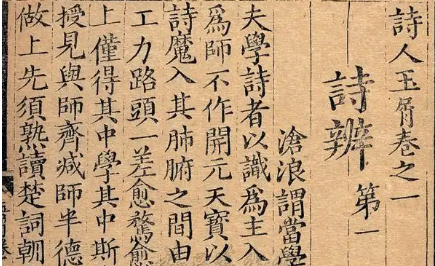 詩人玉屑卷之一
詩辨 第一
滄浪謂當學
夫學詩者以識爲主入
爲師不作開元天寶以
詩魔入其肺腑之間由
工力路頭一差愈騖愈
上僅得其中學其中斯
授見與師齊减師半德
做上先須熟讀楚詞朝